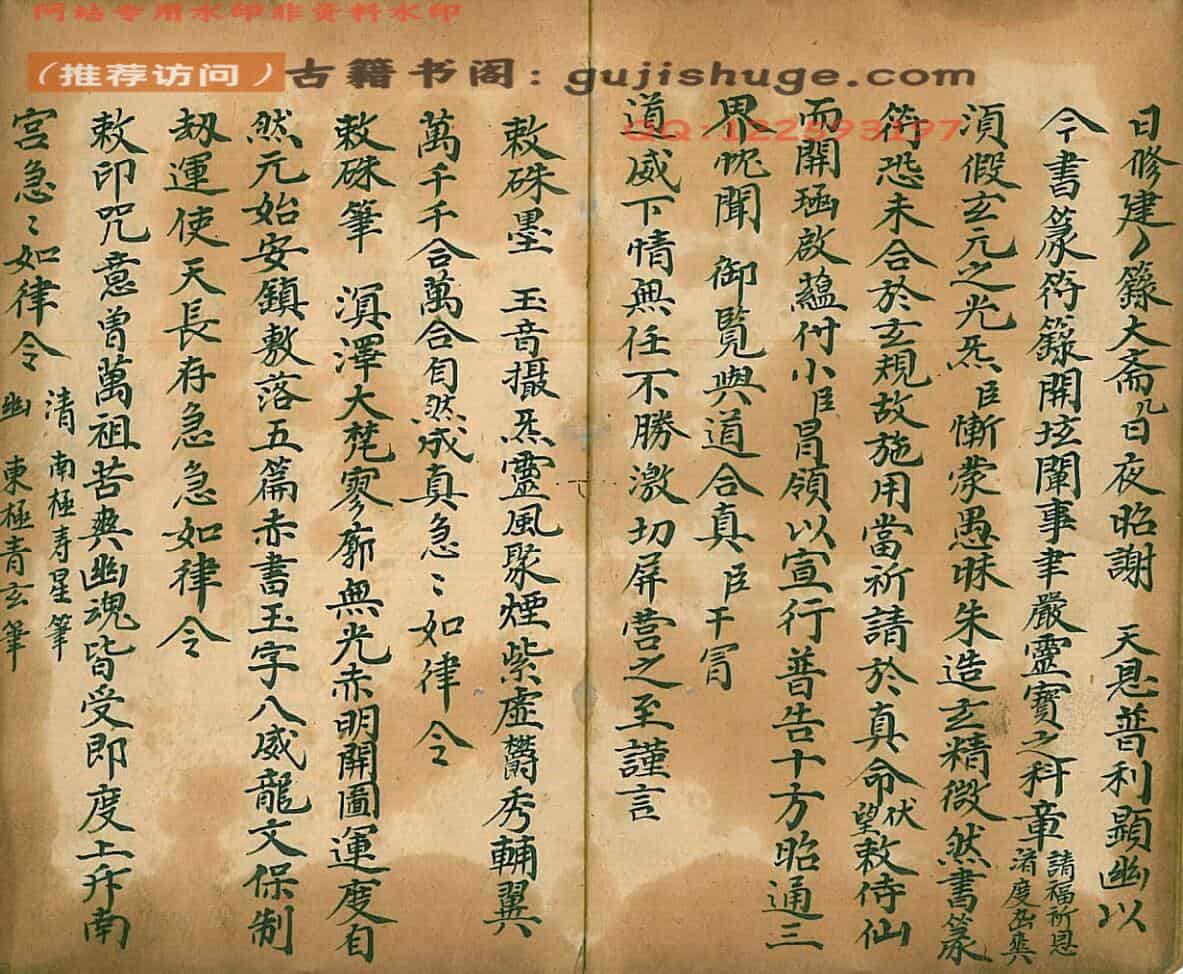 网站专用水印非资料水印
（推荐访问）古籍书阁：gujishuge.com
QQ:122593197
日修建〻籙大斋几日夜昭謝 天恩普利顯幽以
今書篆符籙開坛闡事聿嚴靈寳之科章 請福祈恩 済度幽爽
湏假玄元之光炁臣慚蒙愚昧朱造玄精微然書篆
符恐未合於玄規故施用當祈請於真命伏望敕侍仙
而開函啟蘊付小臣冐領以宣行普告十方昭通三
界 聞 御覧與道合真 臣干冐
道威下情無任不勝激切屏营之至謹言
敕硃墨 玉音攝炁靈風聚煙紫虛欎秀輔翼
萬千千合萬合自然成真急〻如律令
敕硃筆 溟澤大梵寥廓無光赤明開圖運度自
然元始安鎮敷落五篇赤書玉字八威龍文保制
劫運使天長存急急如律令
敕印咒 意曾萬祖苦爽幽魂皆受即度上升南
宮急〻如律令 清 南極寿星筆
幽 東極青玄筆